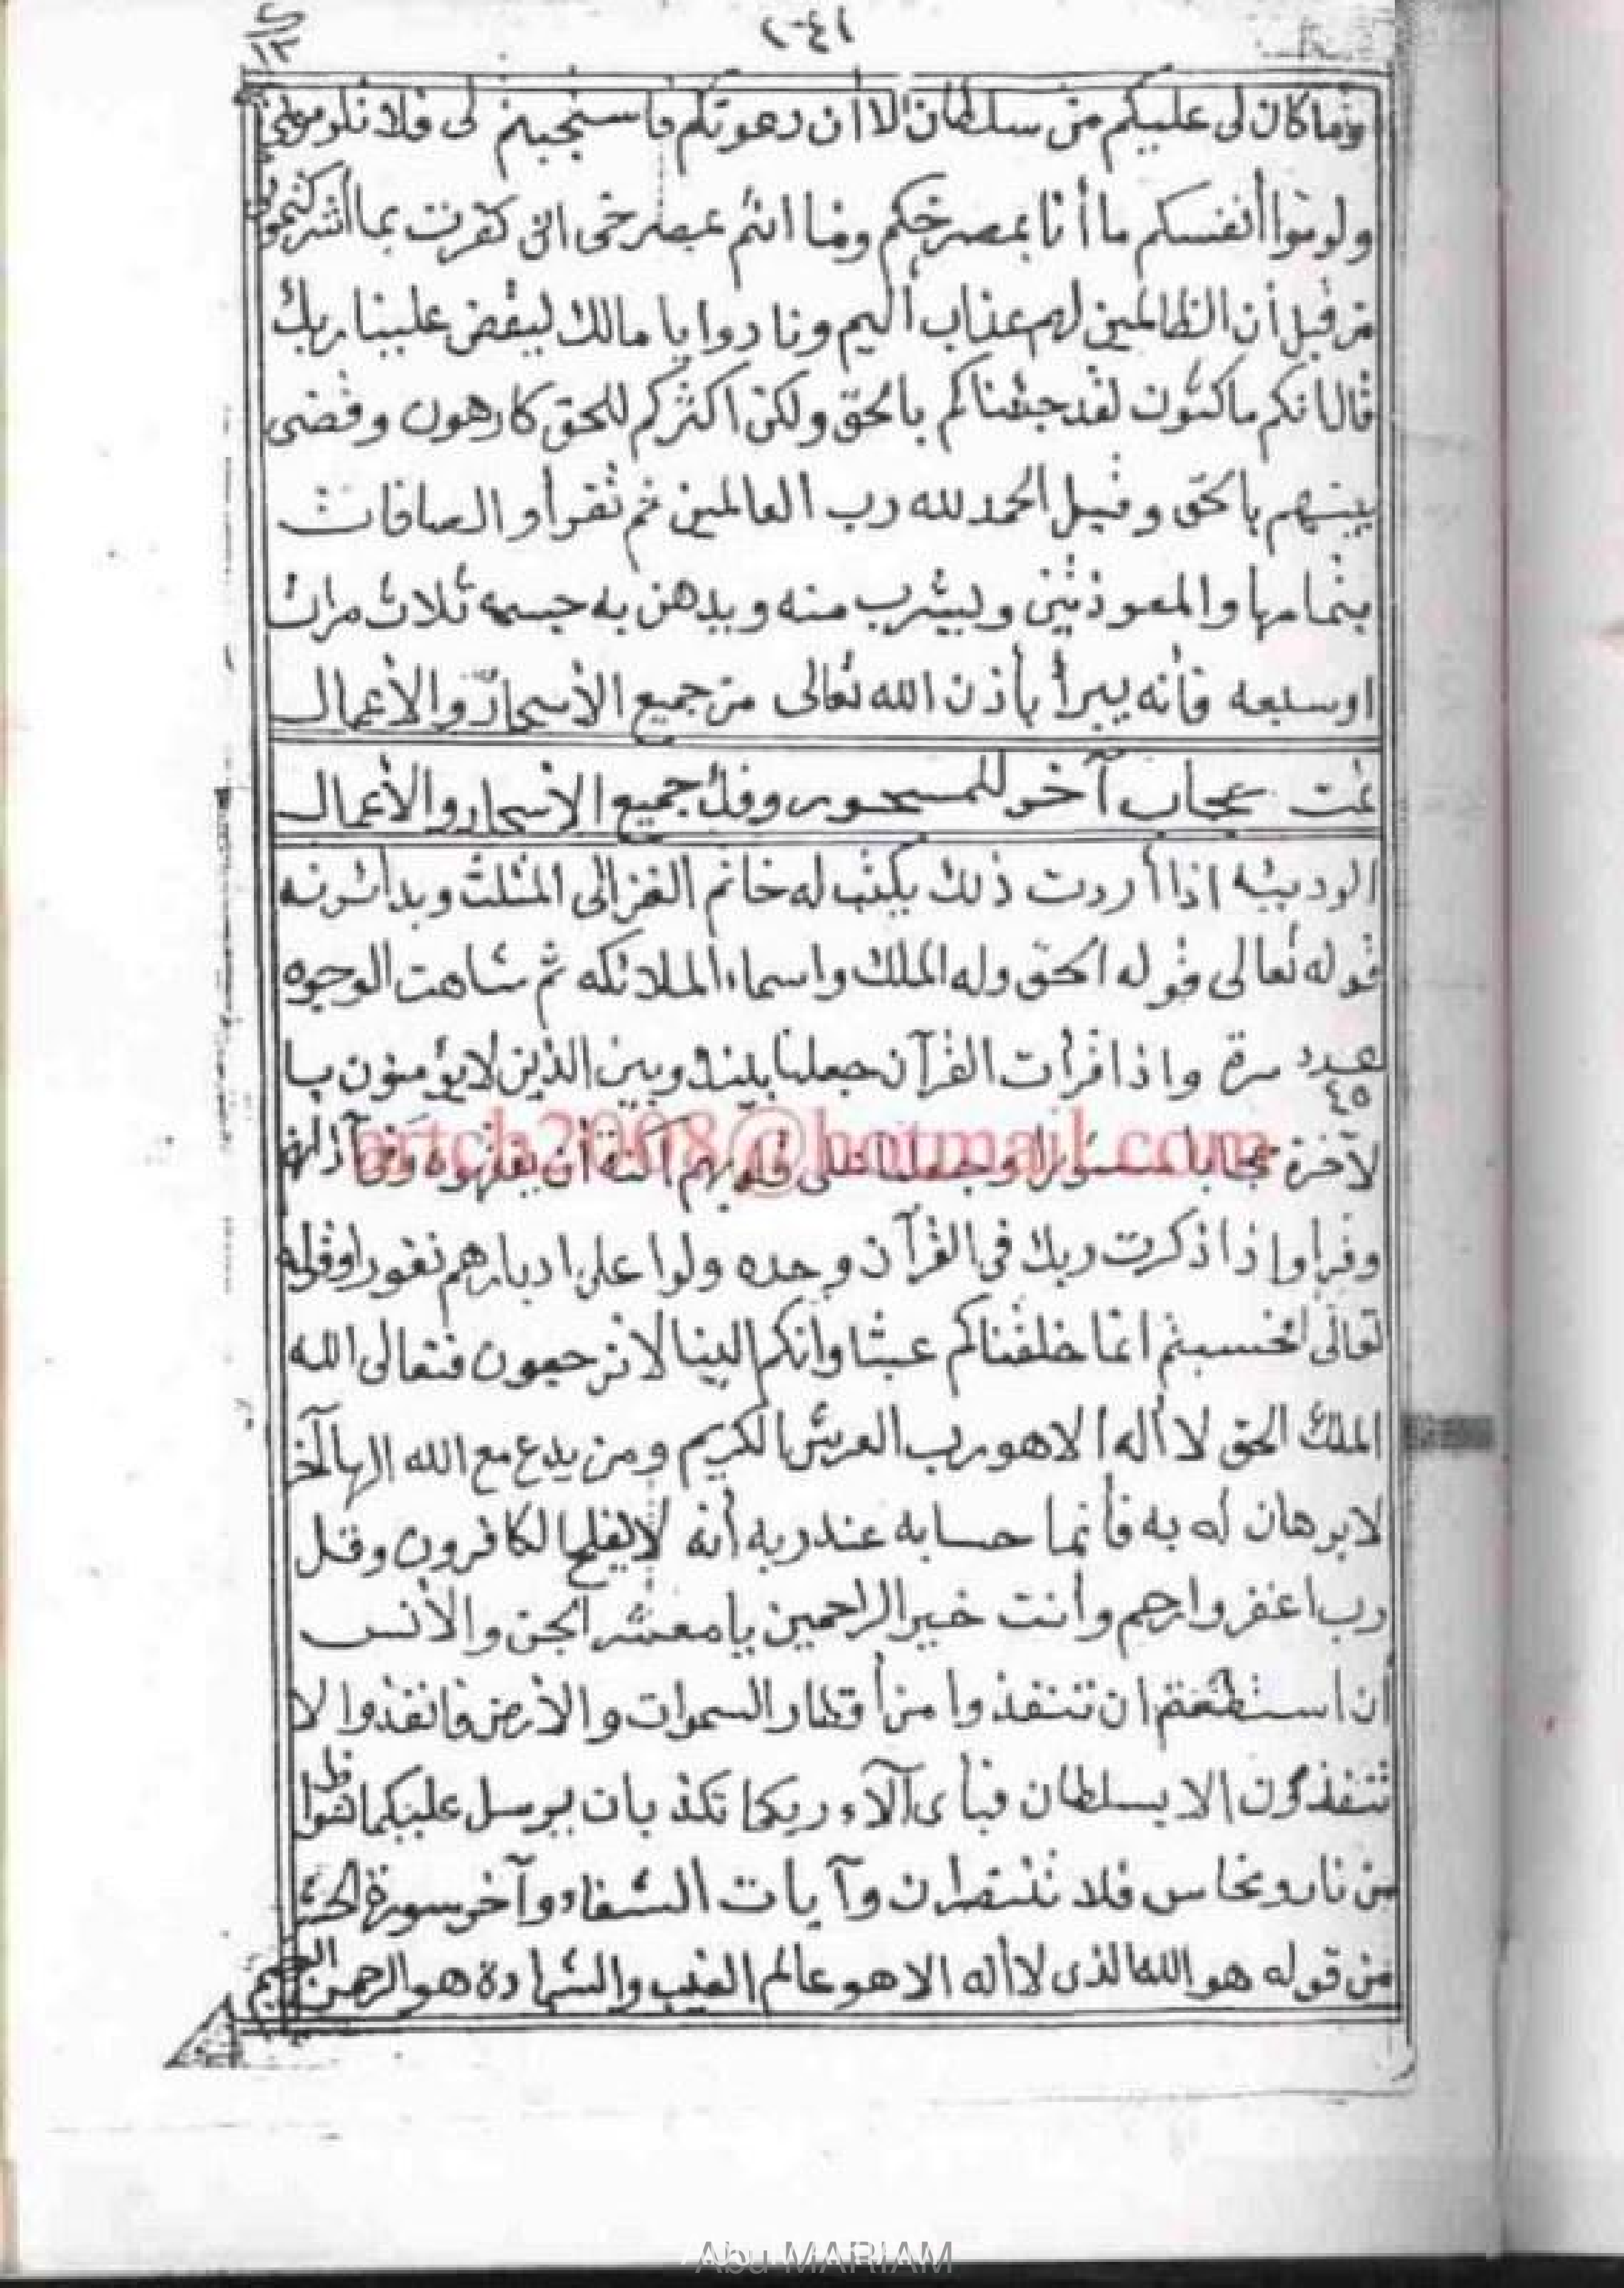 ٢٠٤١
١٣
وما كان لى عليكم من سلطان الا أن دعوتكم فاستجبتم لى فلا تلومونى
ولوموا أنفسكم ما أنا بمصرخكم وما انتم بمصرخى انى كفرت بما أشركتمون
من قبل أن الظالمين لهم عذاب أليم ونادوا يا مالك ليقض علينا ربك
قال انكم ماكثون لقد جئناكم بالحق ولكن اكثركم للحق كارهون وقضى
بينهم بالحق وقيل الحمد لله رب العالمين ثم تقرأ والصافات
بتمامها والمعوذتين وليشرب منه ويدهن به جسمه ثلاث مرات
اوسبعه فأنه يبرأ بأذن الله تعالى من جميع الأسحار والأعمال
تمت حجاب آخر للمسحور وفك جميع الأسحار والأعمال
اذا أردت ذلك يكتب له خاتم الغزالى المثلث وبدائرته
قوله تعالى قوله الحق وله الملك واسماء الملائكه ثم شاهت الوجوه
عدد ٤٥ مرة واذا قرأت القرآن جعلنا بينك وبين الذين لا يؤمنون با
لآخرة حجابا مستورا وجعلنا على قلوبهم اكنة أن يفقهوه وفى آذانهم
وقرا واذا ذكرت ربك فى القرآن وحده ولوا على ادبارهم نفورا وقوله
تعالى أفحسبتم انما خلقناكم عبثا وأنكم الينا لا ترجعون فتعالى الله
الملك الحق لا أله الا هو رب العرش الكريم ومن يدع مع الله الها آخر
لا برهان له به فأنما حسابه عند ربه أنه لا يفلح الكافرون وقل
رب اغفر وارحم وأنت خير الراحمين يا معشر الجن والأنس
أن استطعتم ان تنفذوا من أقطار السموات والأرض فانفذوا لا
تنفذون الا بسلطان فبأى آلاء ربكما تكذبان يرسل عليكما شواظ
من نار ونحاس فلا تنتصران وآيات الشفاء وآخر سورة الحشر
من قوله هو الله الذى لا أله الا هو عالم الغيب والشهادة هو الرحمن الرحيم
artch2008@hotmail.com
Abu MARIAM